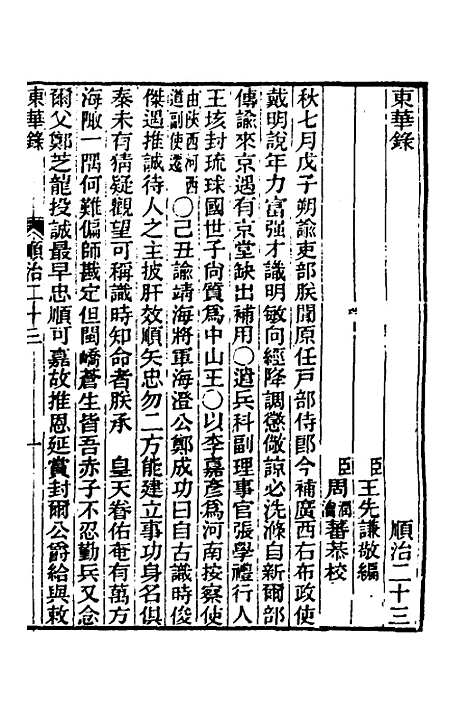 東華錄　順治二十三
臣王先謙敬編
臣周潤蕃周瀹蕃恭校
秋七月戊子朔諭吏部朕聞原任戶部侍郎今補廣西右布政使
戴明說年力富强才識明敏向經降調懲儆諒必洗滌自新爾部
傳諭來京遇有京堂缺出補用○遣兵科副理事官張學禮行人
王垓封琉球國世子尚質爲中山王○以李嘉彥爲河南按察使
由陝西河西道副使遷○己丑諭靖海將軍海澄公鄭成功曰自古識時俊
傑遇推誠待人之主披肝效順矢忠勿二方能建立事功身名俱
泰未有猜疑觀望可稱識時知命者朕承　皇天眷佑奄有萬方
海陬一隅何難偏師戡定但閩嶠蒼生皆吾赤子不忍勤兵又念
爾父鄭芝龍投誠最早忠順可嘉故推恩延賞封爾公爵給與敕
東華錄　順治二十三　一